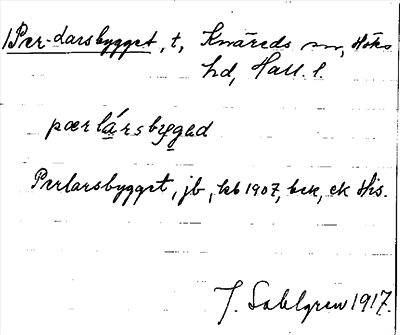 Per-Larsbygget, t, Knäreds sn, Höks
hd, Hall. l.
pærlársbyged
Perlarsbygget, jb, kb 1907, bck, ek His.
J. Sahlgren 1917.